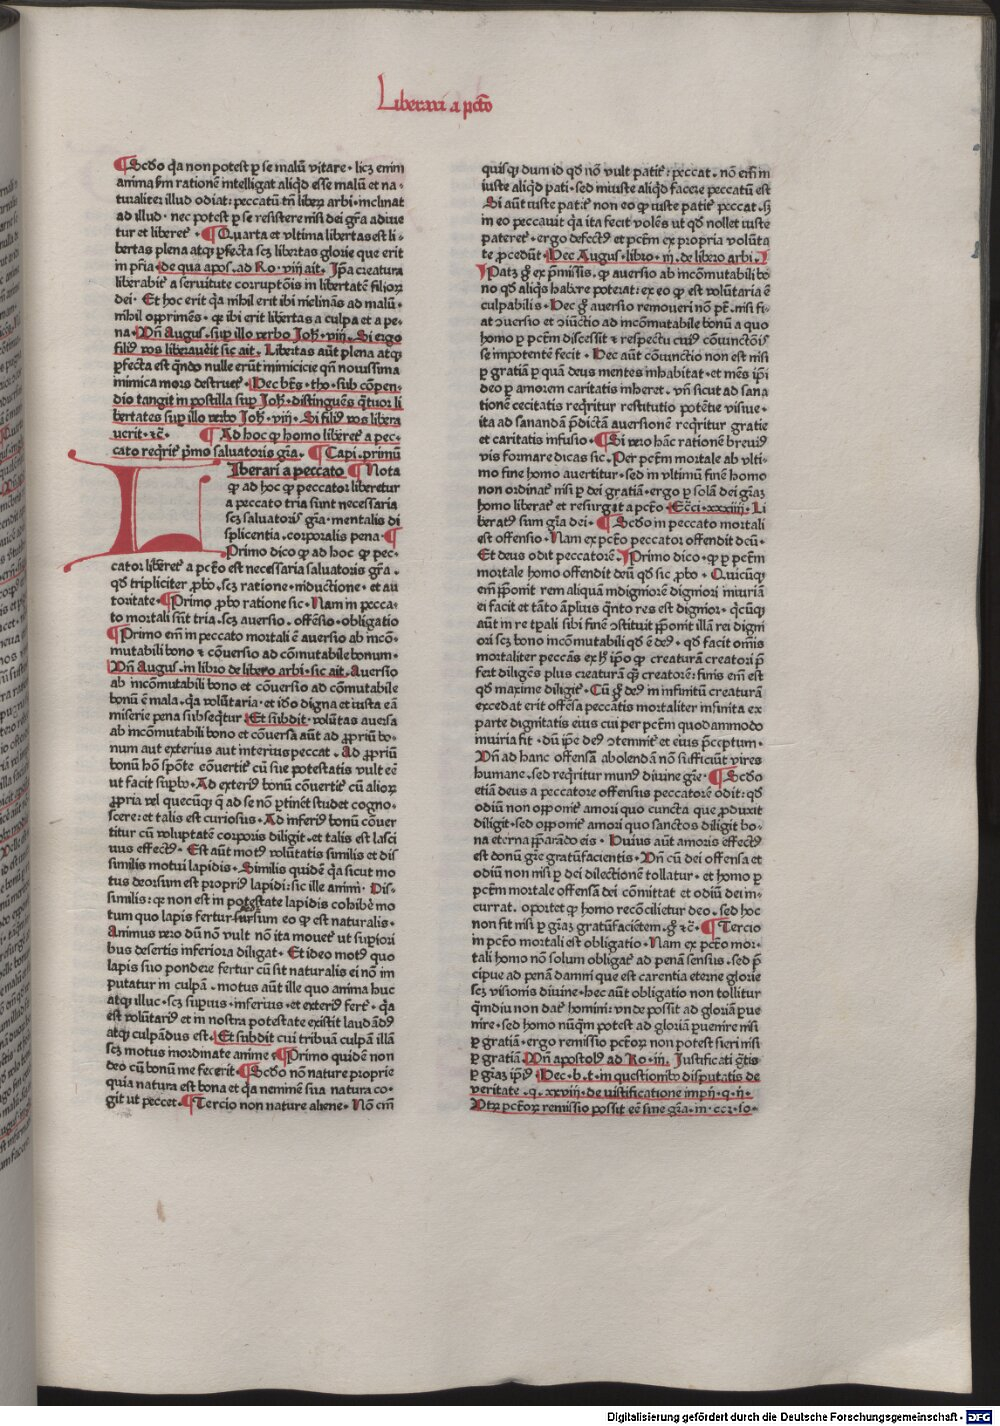 Liberari a pcc̃to
¶Scd̃o q̃a non potest ꝑ se malũ vitare · licꝫ enim
anima fm̃ rationẽ intelligat aliqd̃ esse malũ et na-
turalitẽ illud odiat: peccatũ tñ liberꝫ arbi·inclinat
ad illud · nec potest ꝑ se resistere nisi dei gr̃a adiuue
tur et liberet᷑ · ¶Quarta et vltima libertas est li-
bertas plena atqꝫ ꝑfecta scꝫ libertas glorie que erit
in pr̃ia · de qua apos. ad Ro · viij ait · Ip̃a creatura
liberabit᷑ a seruitute corruptõis in libertatẽ filioꝝ
dei · Et hoc erit q̃a nihil erit ibi inclinãs ad malũ ·
nihil opprimẽs · qꝫ ibi erit libertas a culpa et a pe-
na · Vñ Augus · sup illo verbo Joh̃ · viij · Si ergo
filiꝰ vos liberauẽit sic ait · Libertas aũt plena atqꝫ
ꝑfecta est qñdo nulle erũt inimicicie qñ nouissima
inimica mors destruet᷑ · Hec btũs · tho · sub cõpen-
dio tangit in postilla sup Joh̃ · distinguẽs q̃tuor li
bertates sup illo verbo Joh̃ · viij · Si filiꝰ vos libera
uerit · ⁊c̃ · ¶Ad hoc ꝙ homo liberet᷑ a pec-
cato reqrit᷑ pͥmo saluatoris gr̃a · ¶Capi. primũ
Liberari a peccato ¶Nota
ꝙ ad hoc ꝙ peccator liberetur
a peccato tria sunt necessaria
scꝫ saluatoris gr̃a · mentalis di
splicentia · corporalis pena · ¶
Primo dico ꝙ ad hoc ꝙ pec-
cator liberet᷑ a pcc̃to est necessaria saluatoris gr̃a ·
qd̃ tripliciter ꝓbo · scꝫ ratione · inductione · et au
toritate · ¶Primo ꝓbo ratione sic · Nam in pecca-
to mortali sũt tria · scꝫ auersio · offensio · obligatio
¶Primo em̃ in peccato mortali ẽ auersio ab incõ-
mutabili bono ⁊ cõuersio ad cõmutabile bonum ·
Vñ Augus · in libro de libero arbi · sic ait · Auersio
ab incõmutabili bono et cõuersio ad cõmutabile
bonũ ẽ mala · q̃a volũtaria · et iõo digna et iusta eã
miserie pena subseqtur · Et subdit · volũtas auersa
ab incõmutabili bono et cõuersa aũt ad ꝓpriũ bo-
num aut exterius aut interius peccat · Ad ꝓpriũ
bonũ hõ spõte cõuertit᷑ cũ sue potestatis vult eẽ
ut facit supbꝰ · Ad exteriꝰ bonũ cõuertit᷑ cũ alioꝝ
ꝓpria vel quecũqꝫ q̃ ad se nõ ꝑtinẽt studet cogno-
scere: et talis est curiosus · Ad inferiꝰ bonũ cõuer
titur cũ voluptatẽ corporis diligit · et talis est lasci
uus effectꝰ · Est aũt motꝰ volũtatis similis et dis
similis motui lapidis · Similis quidẽ q̃a sicut mo
tus deorsum est propriꝰ lapidi: sic ille animi · Dis-
similis: qꝛ non est in potestate lapidis cohibẽ mo
tum quo lapis fertur sursum eo ꝙ est naturalis ·
Animus vero dũ nõ vult nõ ita mouet᷑ ut supiori
bus desertis inferiora diligat · Et ideo motꝰ quo
lapis suo pondere fertur cũ sit naturalis ei nõ im
putatur in culpã · motus aũt ille quo anima huc
atqꝫ illuc · scꝫ supius · inferius · et exteriꝰ fert᷑ · q̃a
est volũtariꝰ et in nostra potestate existit laudãdꝰ
atqꝫ culpãdus est · Et subdit cui tribuã culpã illã
scꝫ motus inordinate anime · ¶Primo quidẽ non
deo cũ bonũ me fecerit · ¶Scd̃o nõ nature proprie
quia natura est bona et q̃a neminẽ sua natura co-
git ut peccet · ¶Tercio non nature aliene · Nõ em̃
quisqꝫ dum id qd̃ nõ vult patit᷑: peccat · nõ em̃ in
iuste aliqd̃ pati · sed iniuste aliqd̃ facere peccatũ est
Si aũt iuste patit᷑ non eo ꝙ iuste patit᷑ peccat · sꝫ
in eo peccauit q̃a ita fecit volẽs ut qd̃ nollet iuste
pateret᷑ · ergo defectꝰ et pctm̃ ex propria volũta
te ꝓcedũt · Hec Augus · libro · iij · de libero arbi ·
Patꝫ gͦ ex pͥmissis · ꝙ auersio ab incõmutabili bo
no qd̃ aliqs habere poterat: ex eo ꝙ est volũtaria ẽ
culpabilis · Hec gͦ auersio remoueri nõ pt̃ · nisi fi-
at ↄuersio et ↄiũctio ad incõmutabile bonũ a quo
homo ꝑ pctm̃ discessit ⁊ respectu cuiꝰ cõuinctõis
se impotentẽ fecit · Hec aũt cõiunctio non est nisi
ꝑ gratiã ꝑ quã deus mentes inhabitat · et mẽs ip̃i
deo ꝑ amorem caritatis inheret · vñ sicut ad sana
tionẽ cecitatis reqritur restitutio potẽtie visiue ·
ita ad sanandã p̃dictã auersionẽ reqritur gratie
et caritatis infusio · ¶Si vero hãc rationẽ breuiꝰ
vis formare dicas sic · Per pctm̃ mortale ab vlti-
mo fine homo auertitur · sed in vltimũ finẽ homo
non ordinat᷑ nisi ꝑ dei gratiã · ergo ꝑ solã dei gr̃aꝫ
homo liberat᷑ et resurgit a pcc̃to · Ecc̃i · xxxiiij · Li
beratꝰ sum gr̃a dei · ¶Scd̃o in peccato mortali
est offensio · Nam ex pcc̃to peccator offendit deũ ·
Et deus odit peccatorẽ · Primo dico · ꝙ ꝑ pctm̃
mortale homo offendit deũ qd̃ sic ꝓbo · Quicũqꝫ
em̃ p̃ponit rem aliquã indigniorẽ digniori iniuriã
ei facit et tãto ãplius q̃nto res est dignior · q̃cũqꝫ
aũt in re tp̃ali sibi finẽ ↄstituit p̃ponit illã rei digni
ori scꝫ bono incõmutabili qd̃ ẽ deꝰ · qd̃ facit om̃is
mortaliter peccãs ex hͦ ip̃o ꝙ creaturã creatori p̃
fert diligẽs plus creaturã q̃ꝫ creatorẽ: finis em̃ est
qd̃ maxime diligit᷑ · Cũ gͦ deꝰ in infinitũ creaturã
excedat erit offẽsa peccãtis mortaliter infinita ex
parte dignitatis eius cui per pctm̃ quodammodo
iniuria fit · dũ ip̃e deꝰ ↄtemnit᷑ et eius p̃ceptum ·
Vñ ad hanc offensã abolendã nõ sufficiũt vires
humane · sed reqritur munꝰ diuine gr̃e · ¶Scd̃o
etiã deus a peccatore offensus peccatorẽ odit: qd̃
odiũ non opponit᷑ amori quo cuncta que ꝓduxit
diligit · sed opponit᷑ amori quo sanctos diligit bo-
na eterna p̃parãdo eis · Huius aũt amoris effectꝰ
est donũ gr̃e gratũfacientis · Vñ cũ dei offensa et
odiũ non nisi ꝑ dei dilectionẽ tollatur · et homo ꝑ
pctm̃ mortale offensã dei cõmittat et odiũ dei in-
currat · oportet ꝙ homo recõcilietur deo · sed hoc
non fit nisi ꝑ gr̃aꝫ gratũfacientẽ · gͦ ⁊c̃ · ¶Tercio
in pcc̃to mortali est obligatio · Nam ex pcc̃to mor-
tali homo nõ solum obligat᷑ ad penã sensus · sed p̃
cipue ad penã damni que est carentia eterne glorie
scꝫ visionis diuine · hec aũt obligatio non tollitur
q̃mdiu non dat᷑ homini: vnde possit ad gloriã ꝑue
nire · sed homo nũqm̃ potest ad gloriã ꝑuenire nisi
ꝑ gratiã · ergo remissio pctõꝝ non potest fieri nisi
ꝑ gratiã · Vñ apostolꝰ ad Ro · iij · Justificati gr̃tis
ꝑ gr̃aꝫ ip̃iꝰ · Hec · b · t · in questionibꝰ disputatis de
veritate · q · xxviij · de iustificatione impij · q · ij ·
Vtꝝ pctõꝝ remissio possit eẽ sine gr̃a · in · ccꝛ · so-
Digitalisierung gefördert durch die Deutsche Forschungsgemeinschaft - DFG